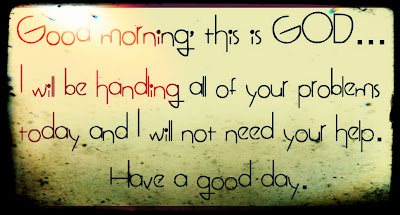 Good morning, this is GOD...
I will be handling all of your problems
today and I will not need your help.
Have a good day.